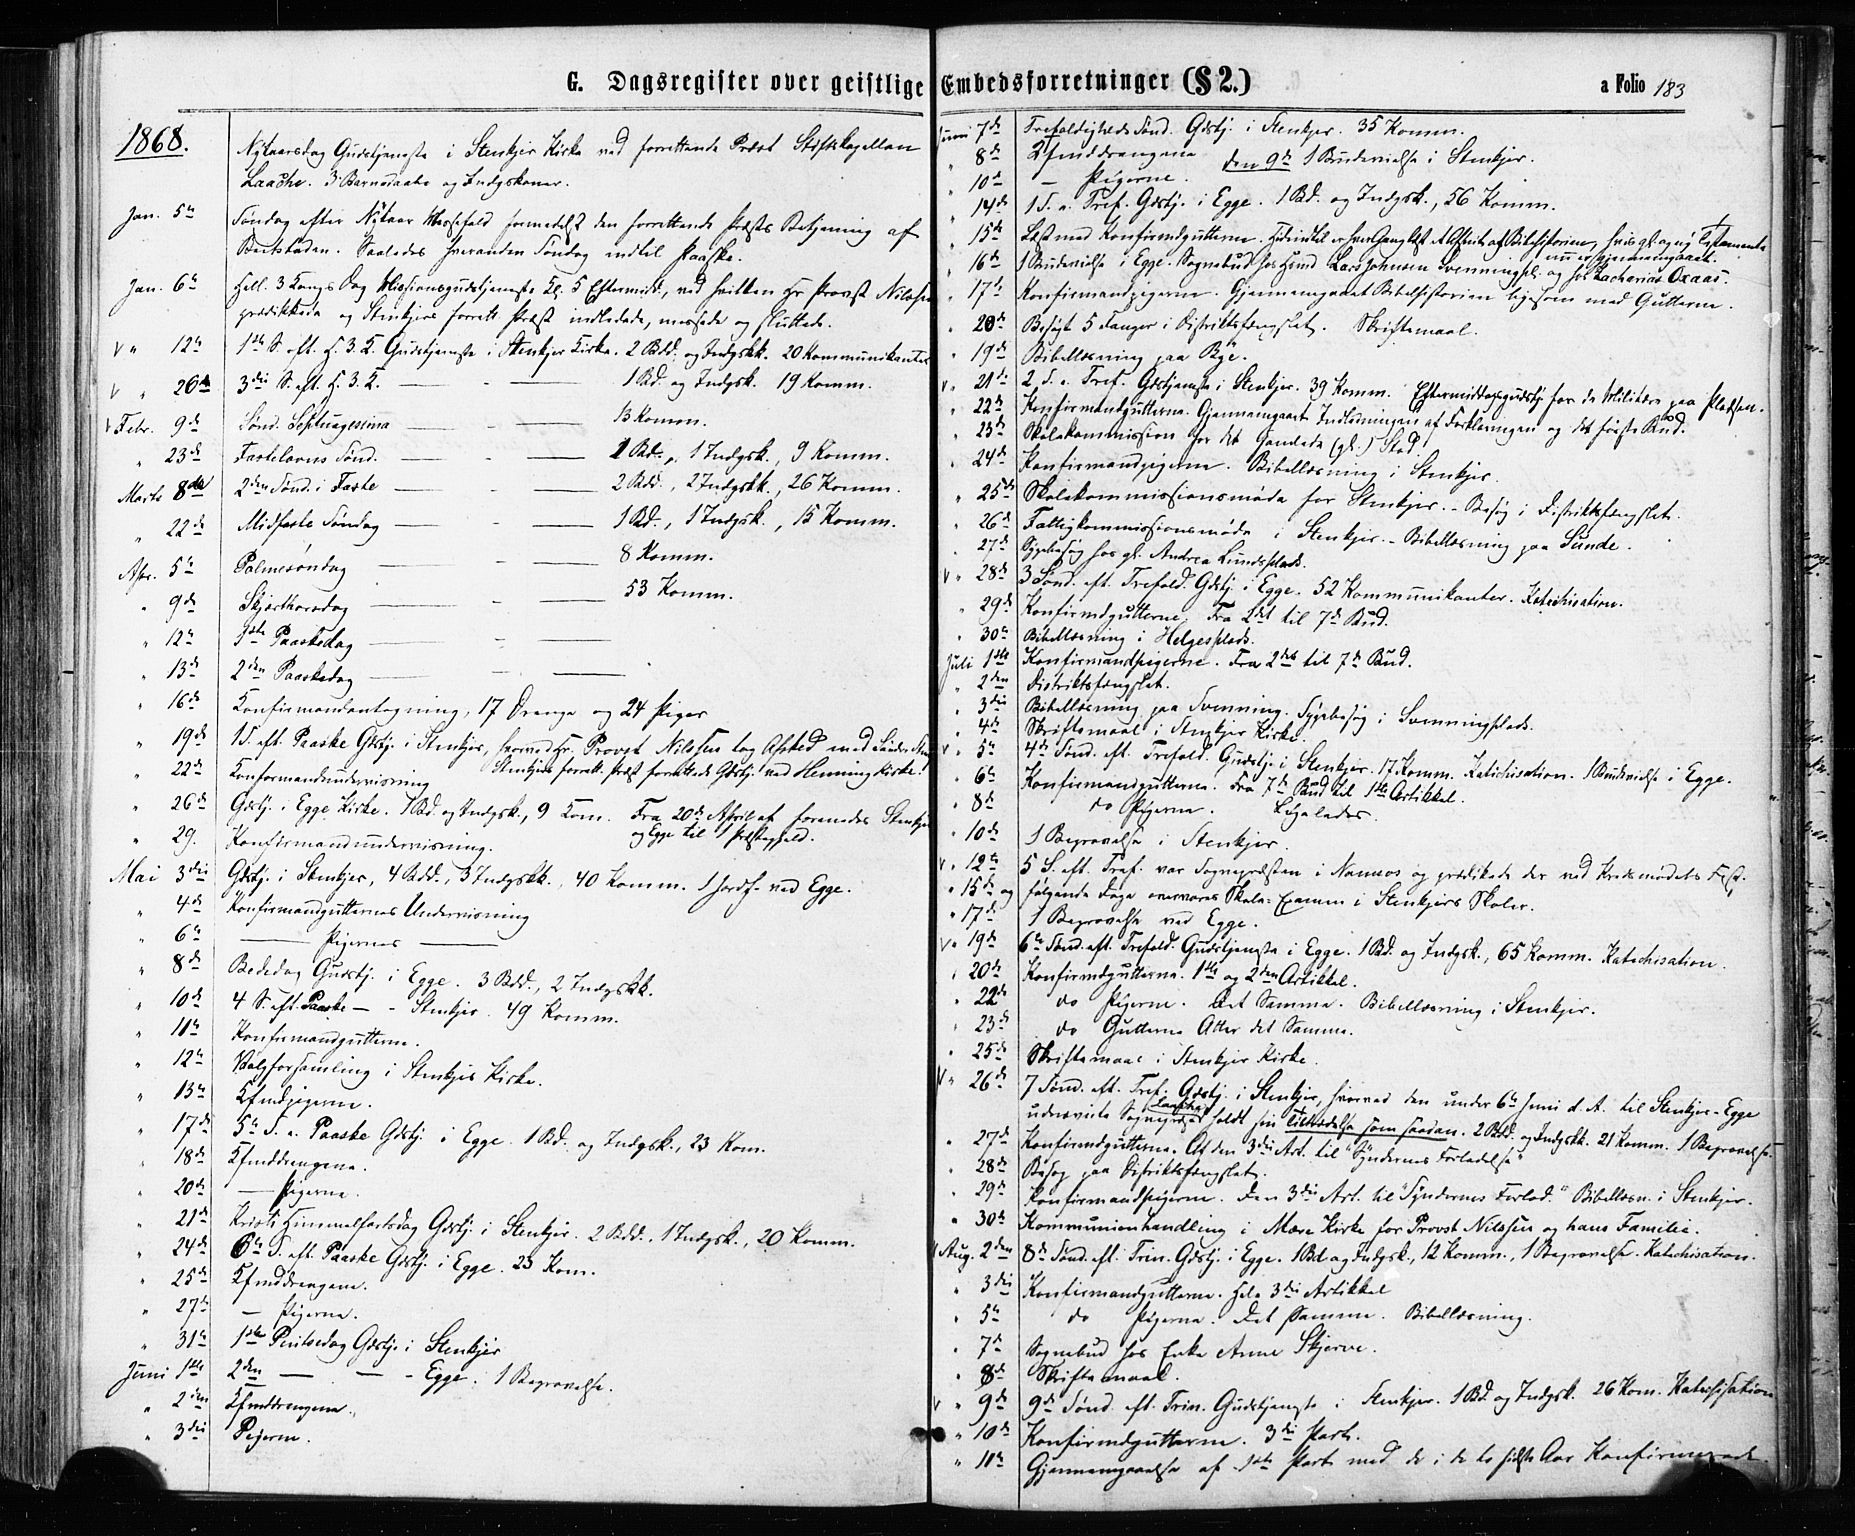 G. Dagsregister over geistlige
1868.
Nytaarsdag Gudstjeneste i Stenkjer Kirke ved forrettende Præst Stiftskapellan
Laache. 3 Barnedaabe og Indgskoner.
Jan. 5te Søndag efter Nytaar Messefald formedelst den forrettende Præsts Betjening af
Beitstaden. Saaledes hveranden Søndag indtil Paaske.
Jan. 6te Hell. 3 Kongs Dag Missionsgudstjeneste Kl. 5 Eftermidd., ved hvilken Hr Provst Nilssen
prædikede og Stenkjers forrett. Præst indledede, messede og sluttede.
V " 12te 1ste S. eft. H. 3. K. Gudstjeneste i Stenkjer Kirke. 2 Bdd. og Indgskk. 20 Kommunikanter
V " 26de 3die S. eft. H. 3. K. — - — 1 Bd. og Indgsk. 19 Komm.
V Febr. 9de Sønd. Septuagesima — - — 13 Komm.
" 23de Fastelavns Sønd. — - — 1 Bd., 1 Indgsk., 9 Komm.
Marts 8de 2den Sønd. i Faste — - — 2 Bdd., 2 Indgskk., 26 Komm.
" 22de Midfaste Søndag — - — 1 Bd., 1 Indgsk., 15 Komm.
Apr. 5te Palmesøndag — - — 8 Komm.
" 9de Skjærthorsdag — - — 53 Komm.
" 12te 1ste Paaskedag — - —
" 13de 2den Paaskedag — - —
" 16de Konfirmandantagning, 17 Drenge og 24 Piger
" 19de 1 S. eft. Paaske Gdstj. i Stenkjer, hvorved Hr. Provst Nilssen tog Afsked med
" 22de Konfirmandundervisning Stenkjers forrett. Præst forrettede Gdstj. ved Henning Kirke.
" 26de Gdstj. i Egge Kirke. 1 Bd. og Indgsk., 9 Kom. Fra 20de April af forenedes Stenkjer
og Egge til 1 Præstegjeld.
" 29. Konfirmandundervisning.
Mai 3die Gdstj. i Stenkjer, 4 Bdd., 3 Indgskk., 40 Komm. 1 Jordf. ved Egge.
" 4de Konfirmandgutternes Undervisning
" 6te — Pigernes —
" 8de Bededag Gudstj. i Egge. 3 Bdd., 2 Indgskk.
" 10de 4 S. eft. Paaske — - Stenkjer. 49 Komm.
" 11te Konfirmandgutterne.
" 12te Valgforsamling i Stenkjer Kirke.
" 13de Kfmdpigerne.
" 17de 5te S. e. Paaske Gdstj. i Egge. 1 Bd. og Indgsk., 23 Kom.
" 18de Kfmddrengene.
" 20de — Pigerne.
" 21de Kristi Himmelfartsdag Gdstj. i Stenkjer. 2 Bdd., 1 Indgsk., 20 Komm.
" 24de 6te S. eft. Paaske Gdstj. i Egge. 23 Kom.
" 25de Kfmddrengene.
" 27de — Pigerne.
" 31te 1ste Pintsedag Gdstj. i Stenkjer
Juni 1ste 2den — — - Egge. 1 Begravelse.
" 2den Kfmddrengene.
" 3die Pigerne.
Embedsforretninger (§ 2.)
a Folio 183
Juni 7de Trefoldigheds Sønd. Gdstj. i Stenkjer. 35 Komm.
" 8de Kfmddrengene. den 9de 1 Brudevielse i Stenkjer.
" 10de — Pigerne.
" 14de 1 S. e. Tref. Gdstj. i Egge. 1 Bd. og Indgsk., 56 Komm.
" 15de Læst med Konfirmdgutterne. Hidindtil er hver Gang læst et Afsnit af Bibelhistorien, hvis gl. og ny Testamente
nu er gjennemgaaet.
" 16de 1 Brudevielse i Egge. Sognebud hos Lars Johnsen Svenningpl. og hos Zacharias Oxaas.
" 17de Konfirmandpigerne. Gjennemgaaet Bibelhistorien ligesom med Gutterne.
" 20de Besøgt 5 Fanger i Distriktsfængslet. Skriftemaal.
" 19de Bibellæsning paa Bye.
V " 21de 2 S. e. Tref. Gdstjeneste i Stenkjer. 39 Komm. Eftermiddagsgudstj. for de Militære paa Pladsen.
" 22de Konfirmandgutterne. Gjennemgaaet Indledningen af Forklaringen og det første Bud.
" 23de Skolekommission for det samlede (gl.) Sted.
" 24de Konfirmandpigerne. Bibellæsning i Stenkjer.
" 25de Skolekommissionsmøde for Stenkjer. - Besøg i Distriktsfængslet.
" 26de Fattigkommissionsmøde i Stenkjer. - Bibellæsning paa Sunde.
" 27de Sygebesøg hos gl. Andrea Lundsplads.
V " 28de 3 Sønd. eft. Trefold. Gdstj. i Egge. 52 Kommunikanter. Katechisation.
" 29de Konfirmdgutterne. Fra 2det til 7de Bud.
" 30te Bibellæsning i Helgesplads.
Juli 1ste Konfirmandpigerne. Fra 2det til 7de Bud.
" 2den Distriktsfængslet.
" 3die Bibellæsning paa Svenning. Sygebesøg i Svenningplads.
" 4de Skriftemaal i Stenkjer Kirke.
V " 5te 4de Sønd. eft. Trefold. Gudstj. i Stenkjer. 17 Komm. Katechisation. 1 Brudevielse i Egge.
" 6te Konfirmandgutterne. Fra 7de Bud til 1ste Artikkel.
" 8de do Pigerne. Ligeledes.
" 10de 1 Begravelse i Stenkjer.
V " 12te 5 S. eft. Tref. var Sognepræsten i Namsos og prædikede der ved Kredsmødets Fest.
" 15de og følgende Dage overværes Skole-Examen i Stenkjers Skoler.
" 17de 1 Begravelse ved Egge.
V " 19de 6te Sønd. eft. Trefold. Gudstjeneste i Egge. 1 Bd. og Indgsk., 65 Komm. Katechisation.
" 20de Konfirmdgutterne. 1ste og 2den Artikkel.
" 22de do Pigerne. Det Samme. Bibellæsning i Stenkjer.
" 23de do Gutterne Atter det Samme.
" 25de Skriftemaal i Stenkjer Kirke.
V " 26de 7 Sønd. eft. Tref. Gdstj. i Stenkjer, hvorved den under 6te Juni d. A. til Stenkjer-Egge
udnævnte Sognepræst Laache holdt sin Tiltrædelse som saadan. 2 Bdd. og Indgskk. 21 Komm. 1 Begravelse.
" 27de Konfirmdgutterne. Af den 3die Art. til "Syndernes Forladelse"
" 28de Besøg paa Distriktsfængslet.
" 29de Konfirmandpigerne. Den 3die Art. til "Syndernes Forlad." Bibellæsn. i Stenkjer.
" 30te Kommunionhandling i Mære Kirke for Provst Nilssen og hans Familie.
V Aug. 2den 8de Sønd. eft. Trin. Gdstj. i Egge. 1 Bd. og Indgsk., 12 Komm., 1 Begravelse. Katechisation.
" 3die Konfirmandgutterne. Hele 3die Artikkel
" 5te do Pigerne. Det Samme. Bibellæsning.
" 7de Sognebud hos Enke Anne Skjerve.
" 8de Skriftemaal.
V " 9de 9de Sønd. eft. Trin. Gudstjeneste i Stenkjer. 1 Bd. og Indgsk. 26 Kom. Katechisation
" 10de Konfirmdgutterne. 3die Part.
" 11te Gjennemgaaelse af 1ste Part med de i de to sidste Aar Konfirmerede.